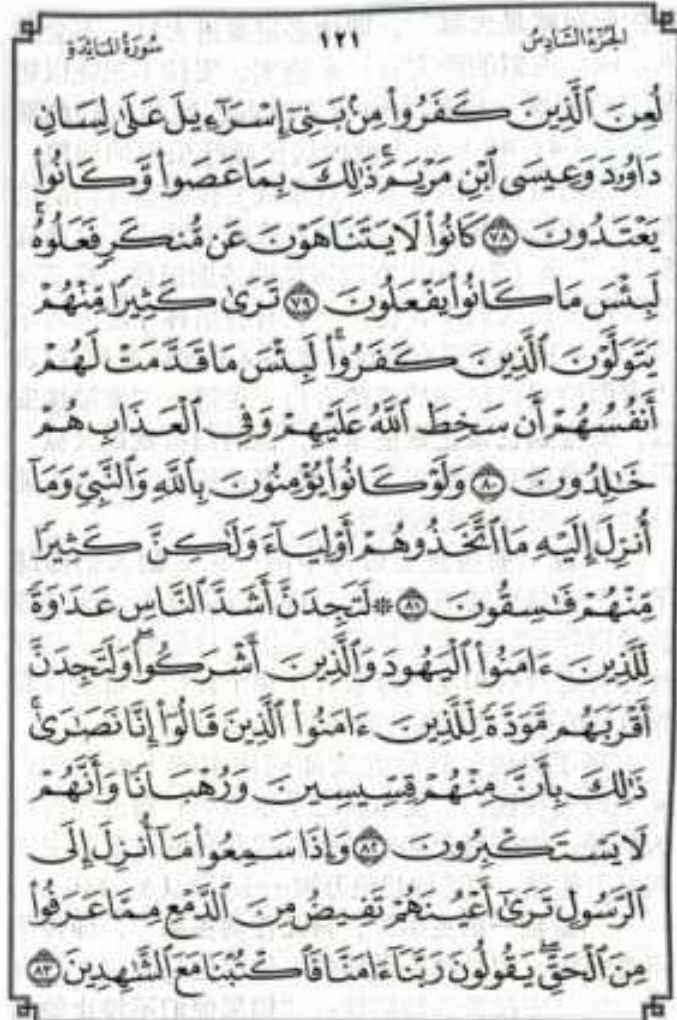 الجزء السادس ١٢١ سورة المائدة
لُعِنَ ٱلَّذِينَ كَفَرُوا۟ مِنۢ بَنِىٓ إِسْرَٰٓءِيلَ عَلَىٰ لِسَانِ
دَاوُۥدَ وَعِيسَى ٱبْنِ مَرْيَمَ ۚ ذَٰلِكَ بِمَا عَصَوا۟ وَّكَانُوا۟
يَعْتَدُونَ ٧٨ كَانُوا۟ لَا يَتَنَاهَوْنَ عَن مُّنكَرٍ فَعَلُوهُ ۚ
لَبِئْسَ مَا كَانُوا۟ يَفْعَلُونَ ٧٩ تَرَىٰ كَثِيرًا مِّنْهُمْ
يَتَوَلَّوْنَ ٱلَّذِينَ كَفَرُوا۟ ۚ لَبِئْسَ مَا قَدَّمَتْ لَهُمْ
أَنفُسُهُمْ أَن سَخِطَ ٱللَّهُ عَلَيْهِمْ وَفِى ٱلْعَذَابِ هُمْ
خَٰلِدُونَ ٨٠ وَلَوْ كَانُوا۟ يُؤْمِنُونَ بِٱللَّهِ وَٱلنَّبِىِّ وَمَآ
أُنزِلَ إِلَيْهِ مَا ٱتَّخَذُوهُمْ أَوْلِيَآءَ وَلَٰكِنَّ كَثِيرًا
مِّنْهُمْ فَٰسِقُونَ ٨١ ۞ لَتَجِدَنَّ أَشَدَّ ٱلنَّاسِ عَدَٰوَةً
لِّلَّذِينَ ءَامَنُوا۟ ٱلْيَهُودَ وَٱلَّذِينَ أَشْرَكُوا۟ ۖ وَلَتَجِدَنَّ
أَقْرَبَهُم مَّوَدَّةً لِّلَّذِينَ ءَامَنُوا۟ ٱلَّذِينَ قَالُوٓا۟ إِنَّا نَصَٰرَىٰ ۚ
ذَٰلِكَ بِأَنَّ مِنْهُمْ قِسِّيسِينَ وَرُهْبَانًا وَأَنَّهُمْ
لَا يَسْتَكْبِرُونَ ٨٢ وَإِذَا سَمِعُوا۟ مَآ أُنزِلَ إِلَى
ٱلرَّسُولِ تَرَىٰٓ أَعْيُنَهُمْ تَفِيضُ مِنَ ٱلدَّمْعِ مِمَّا عَرَفُوا۟
مِنَ ٱلْحَقِّ ۖ يَقُولُونَ رَبَّنَآ ءَامَنَّا فَٱكْتُبْنَا مَعَ ٱلشَّٰهِدِينَ ٨٣